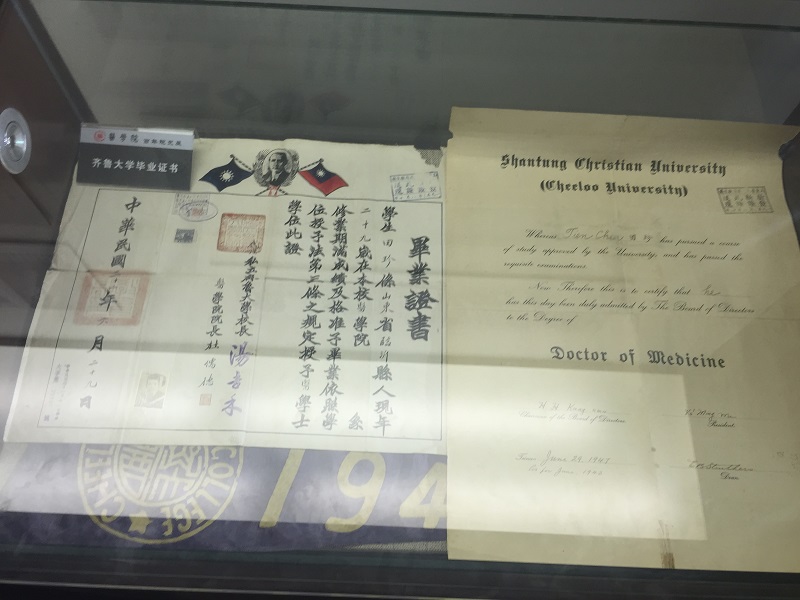 醫學院
齐鲁大学毕业证书
畢業證書
學生田珍係山東省臨沂縣人現年
二十九歲在本校醫學院 系
修業期滿成績及格准予畢業依照學
位授予法第三條之規定授予醫學士
學位此證
私立齊魯大學校長
醫學院院長杜儒德
中華民國 年 月二十九日
COLLEGE
194
Shantung Christian University
(Cheeloo University)
Whereas Tien Chen 田珍 has pursued a course
of study approved by the University, and has passed the
requisite examinations.
Now Therefore this is to certify that he
has this day been duly admitted by The Board of Directors
to the Degree of
Doctor of Medicine
H. H. Kung
Chairman of the Board of Directors
President
June 28, 1947
Dean